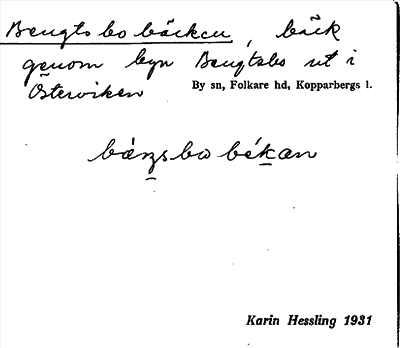 Bengtsbobäcken, bäck
genom byn Bengtsbo ut i
Österviken By sn, Folkare hd, Kopparbergs l.
Karin Hessling 1931